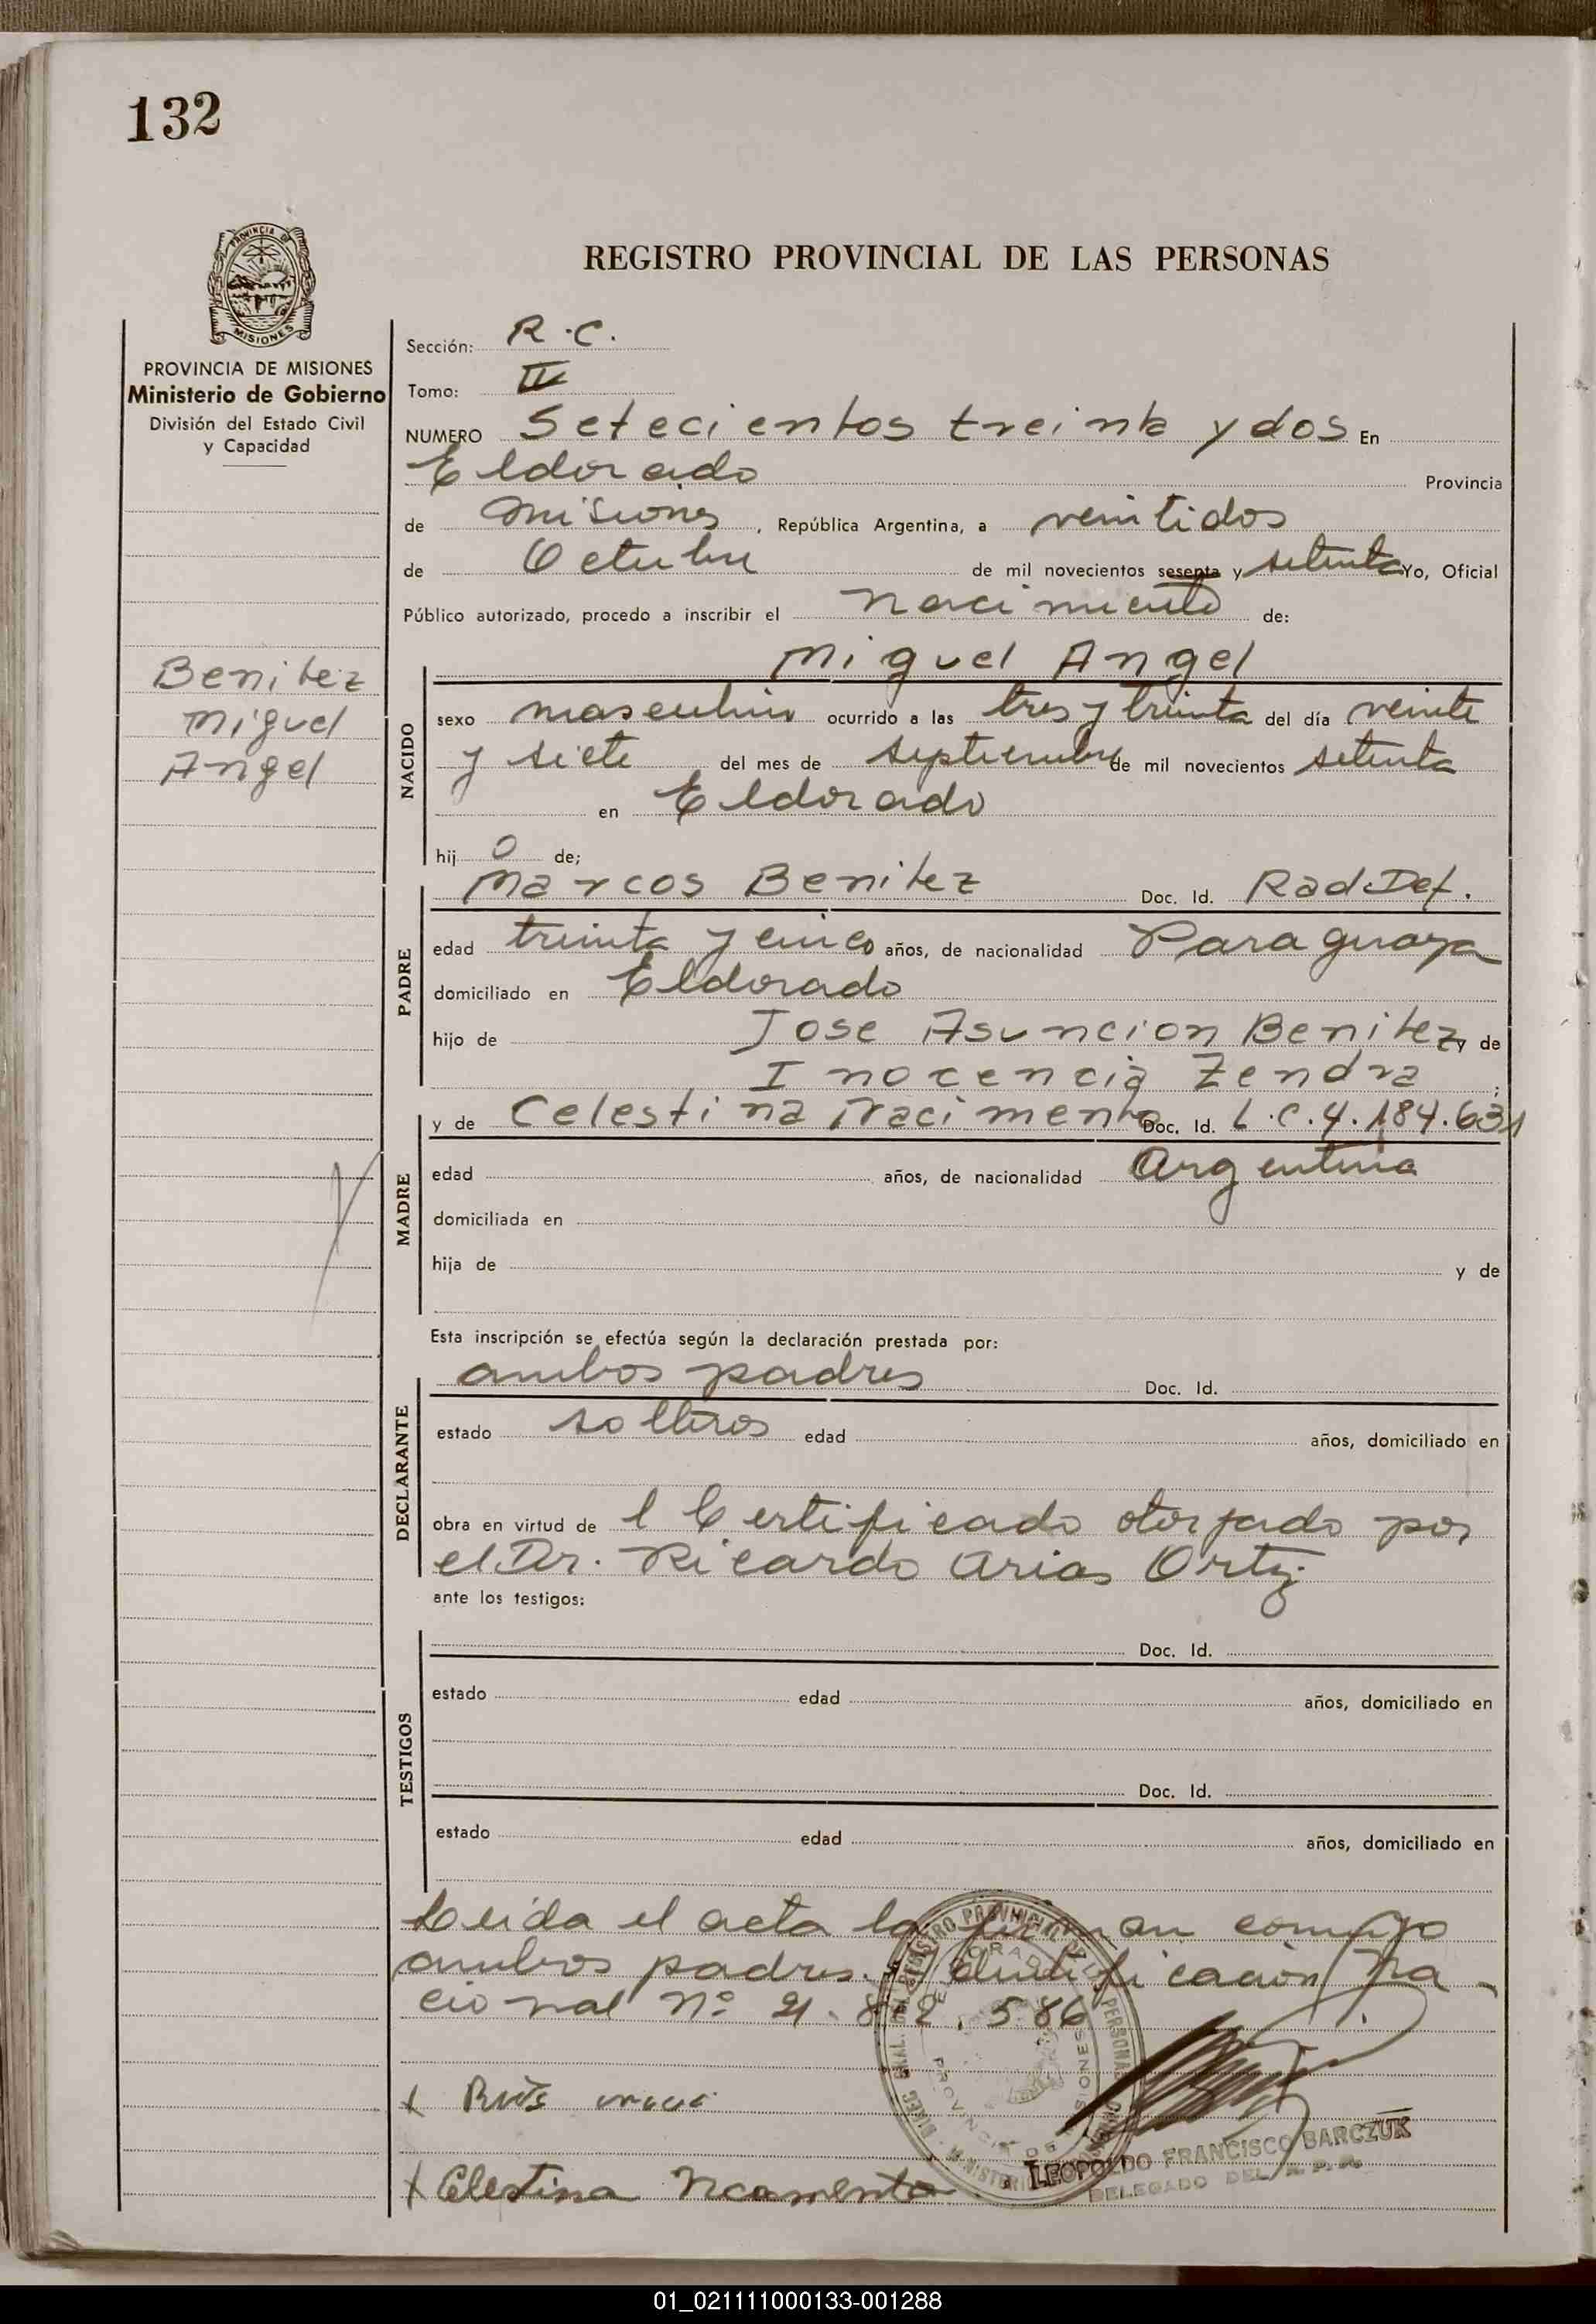 132
PROVINCIA DE MISIONES
Ministerio de Gobierno
División del Estado Civil
y Capacidad
Benitez
Miguel
Angel
REGISTRO PROVINCIAL DE LAS PERSONAS
Sección: R.C.
Tomo: IV
NUMERO Setecientos treinta y dos En
Eldorado Provincia
de Misiones, República Argentina, a veintidos
de Octubre de mil novecientos sesenta y setenta Yo, Oficial
Público autorizado, procedo a inscribir el nacimiento de:
Miguel Angel
NACIDO
sexo masculino ocurrido a las tres y treinta del día veinte
y siete del mes de septiembre de mil novecientos setenta
en Eldorado
hij o de;
PADRE
Marcos Benitez Doc. Id. Rad Def.
edad treinta y cinco años, de nacionalidad Paraguaya
domiciliado en Eldorado
hijo de Jose Asuncion Benitez y de
Inocencia Zendra
MADRE
y de Celestina Nacimento Doc. Id. L.C.4.184.631
edad años, de nacionalidad Argentina
domiciliada en
hija de y de
Esta inscripción se efectúa según la declaración prestada por:
DECLARANTE
ambos padres Doc. Id.
estado solteros edad años, domiciliado en
obra en virtud de l Certificado otorgado por
el Dr. Ricardo Arias Ortiz
ante los testigos:
TESTIGOS
Doc. Id.
estado edad años, domiciliado en
Doc. Id.
estado edad años, domiciliado en
Leida el acta la firman conmigo
ambos padres. Identificación Na-
cional Nº 21.812.586
x
x Celestina
LEOPOLDO FRANCISCO BARCZUK
DELEGADO DEL R. P. P.
01_021111000133-001288